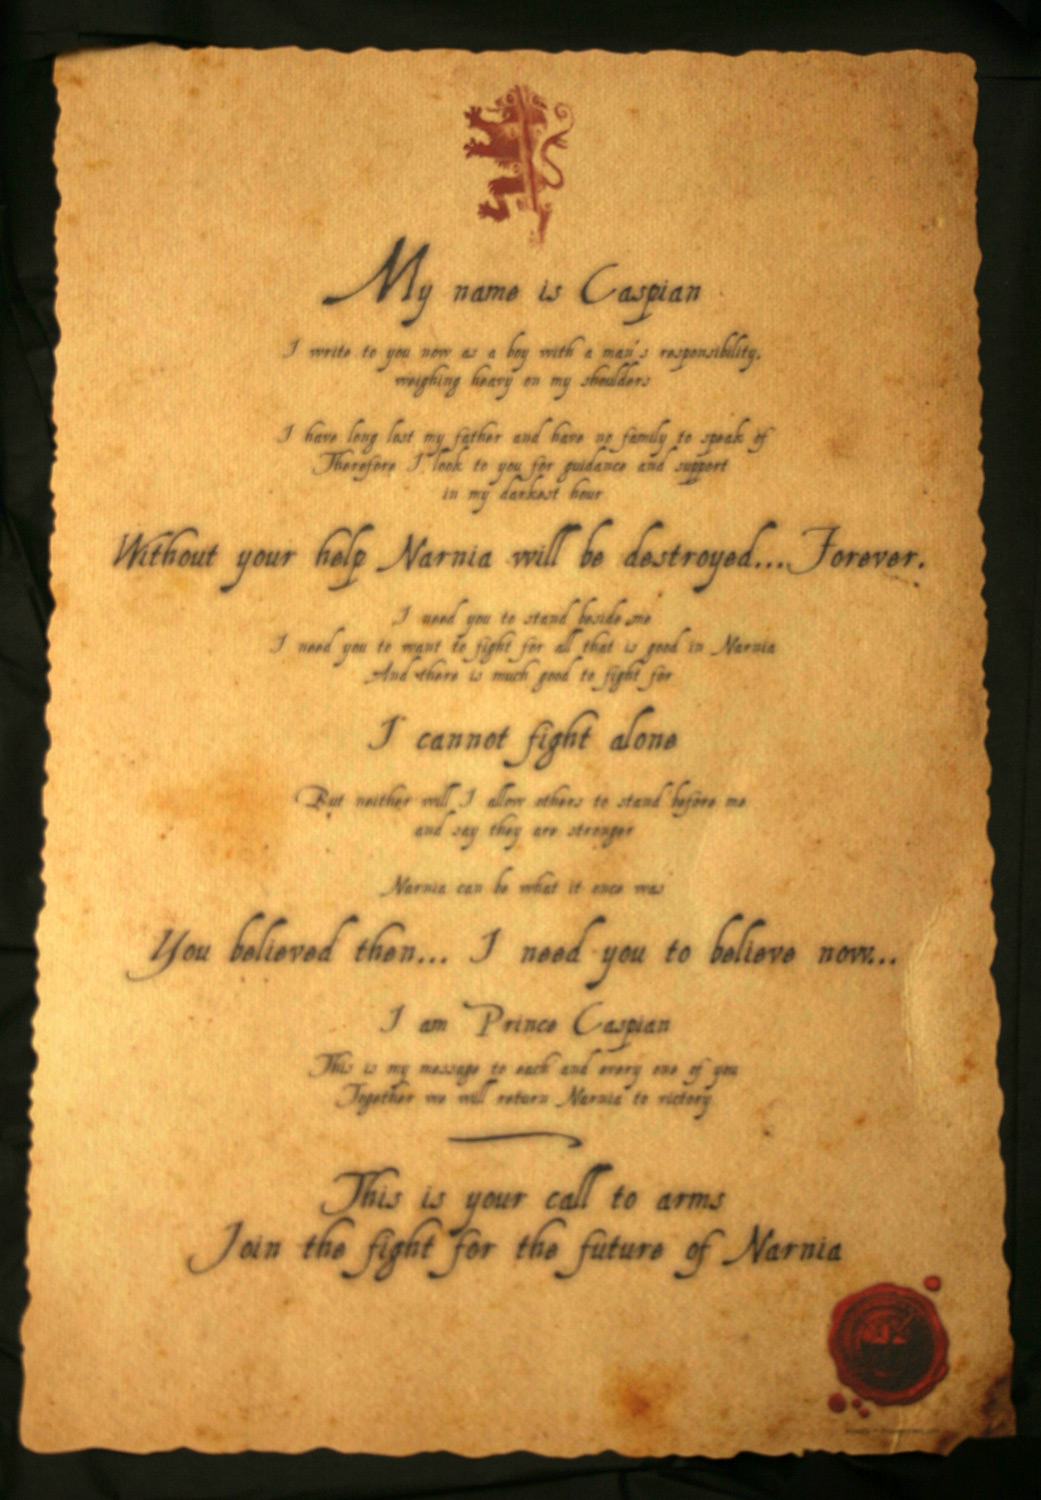 My name is Caspian
I write to you now as a boy with a man's responsibility,
weighing heavy on my shoulders
I have long lost my father and have no family to speak of
Therefore I look to you for guidance and support
in my darkest hour
Without your help Narnia will be destroyed....Forever.
I need you to stand beside me
I need you to want to fight for all that is good in Narnia
And there is much good to fight for
I cannot fight alone
But neither will I allow others to stand before me
and say they are stronger
Narnia can be what it once was
You believed then... I need you to believe now...
I am Prince Caspian
This is my message to each and every one of you
Together we will return Narnia to victory
This is your call to arms
Join the fight for the future of Narnia